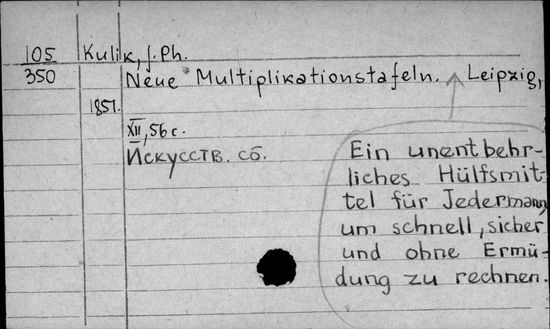 105 Kulik, J. Ph.
350 Neue Multiplikationstafeln. Leipzig,
1851.
XII, 56 с.
Искусств. сб.
Ein unentbehr-
liches Hülfsmit-
tel für Jedermann,
um schnell, sicher
und ohne Ermü-
dung zu rechnen.